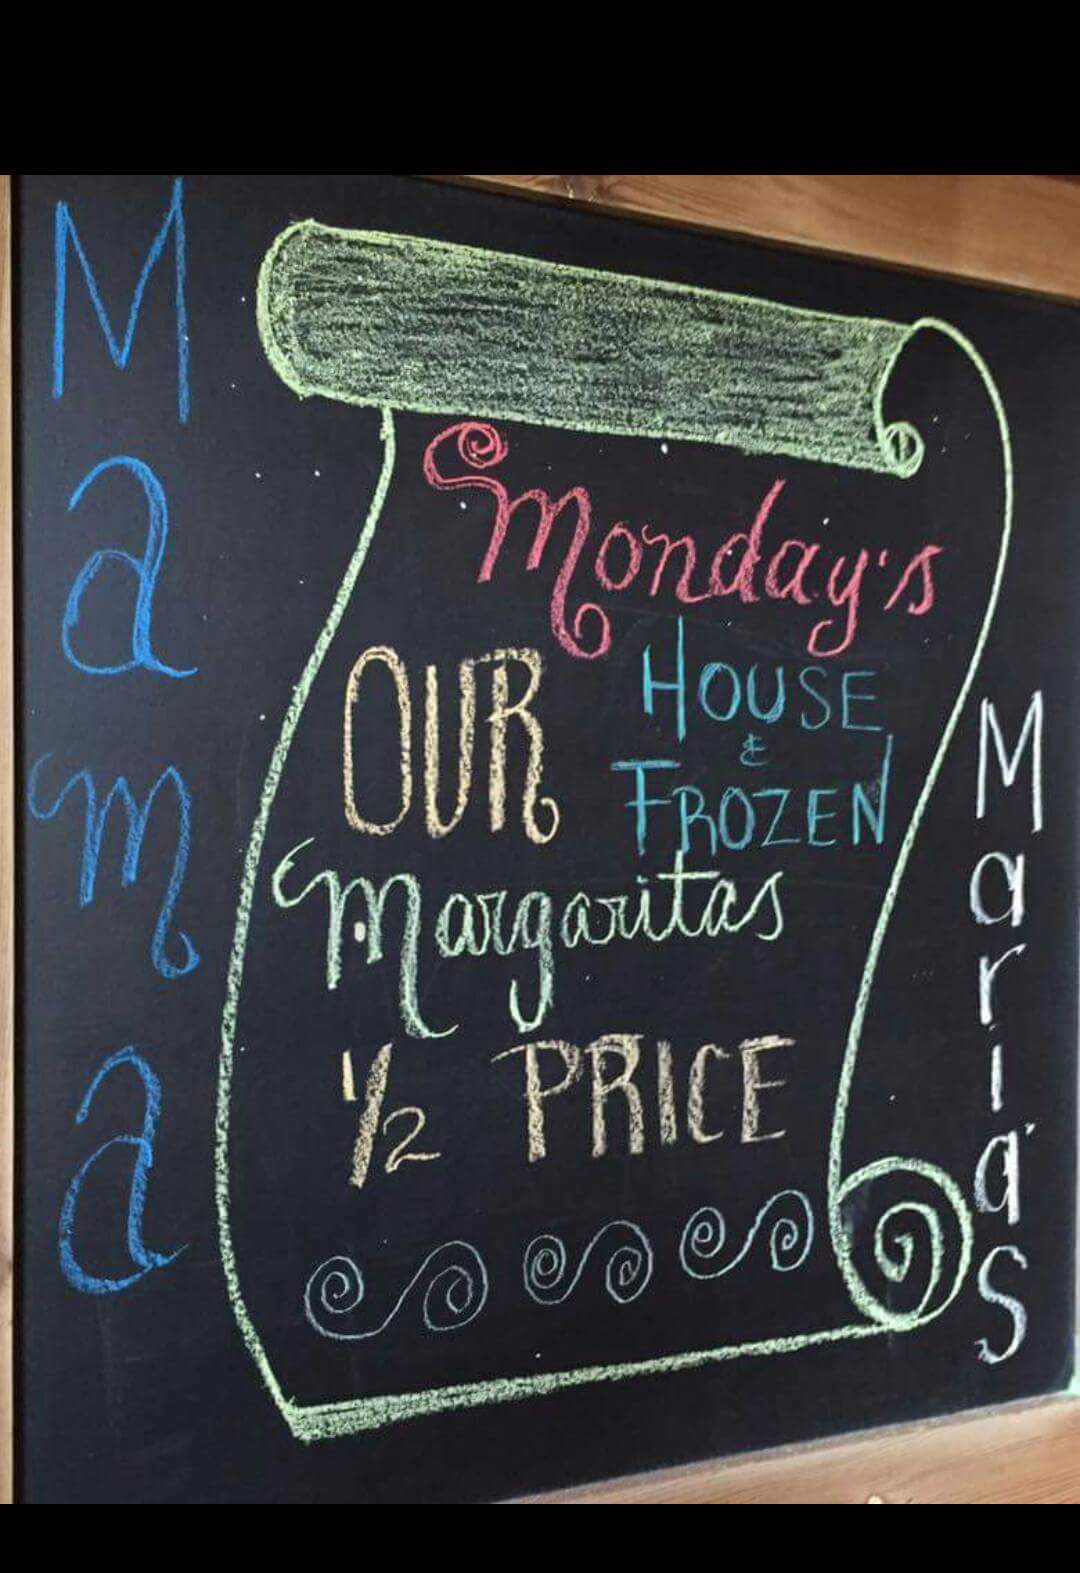 Mama
Monday's
OUR HOUSE
&
FROZEN
Margaritas
1/2 PRICE
Marias